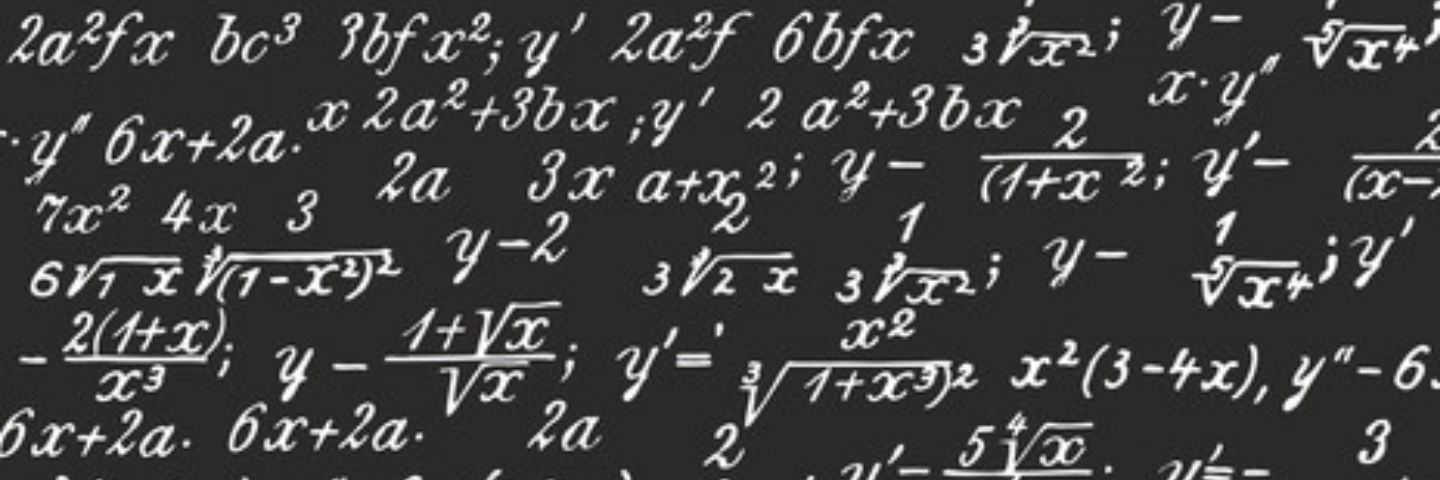 2a²fx bc³ 3bfx²; y′ 2a²f 6bfx 3∛x²; y− ⁵√x⁴;
x·y″
·y″ 6x+2a. x 2a²+3bx ;y′ 2 a²+3bx
2a 3x a+x²; y− 2/(1+x²; y′− (x−
7x² 4x 3
6√1 x ∛(1−x²)² y−2 2/3∛2 x 1/3∛x²; y− 1/⁵√x⁴; y′
−2(1+x)/x³; y−(1+√x)/√x; y′=′ x²/∛1+x³)² x²(3−4x), y″−6
6x+2a. 6x+2a. 2a 2 y′− 5⁴√x 3